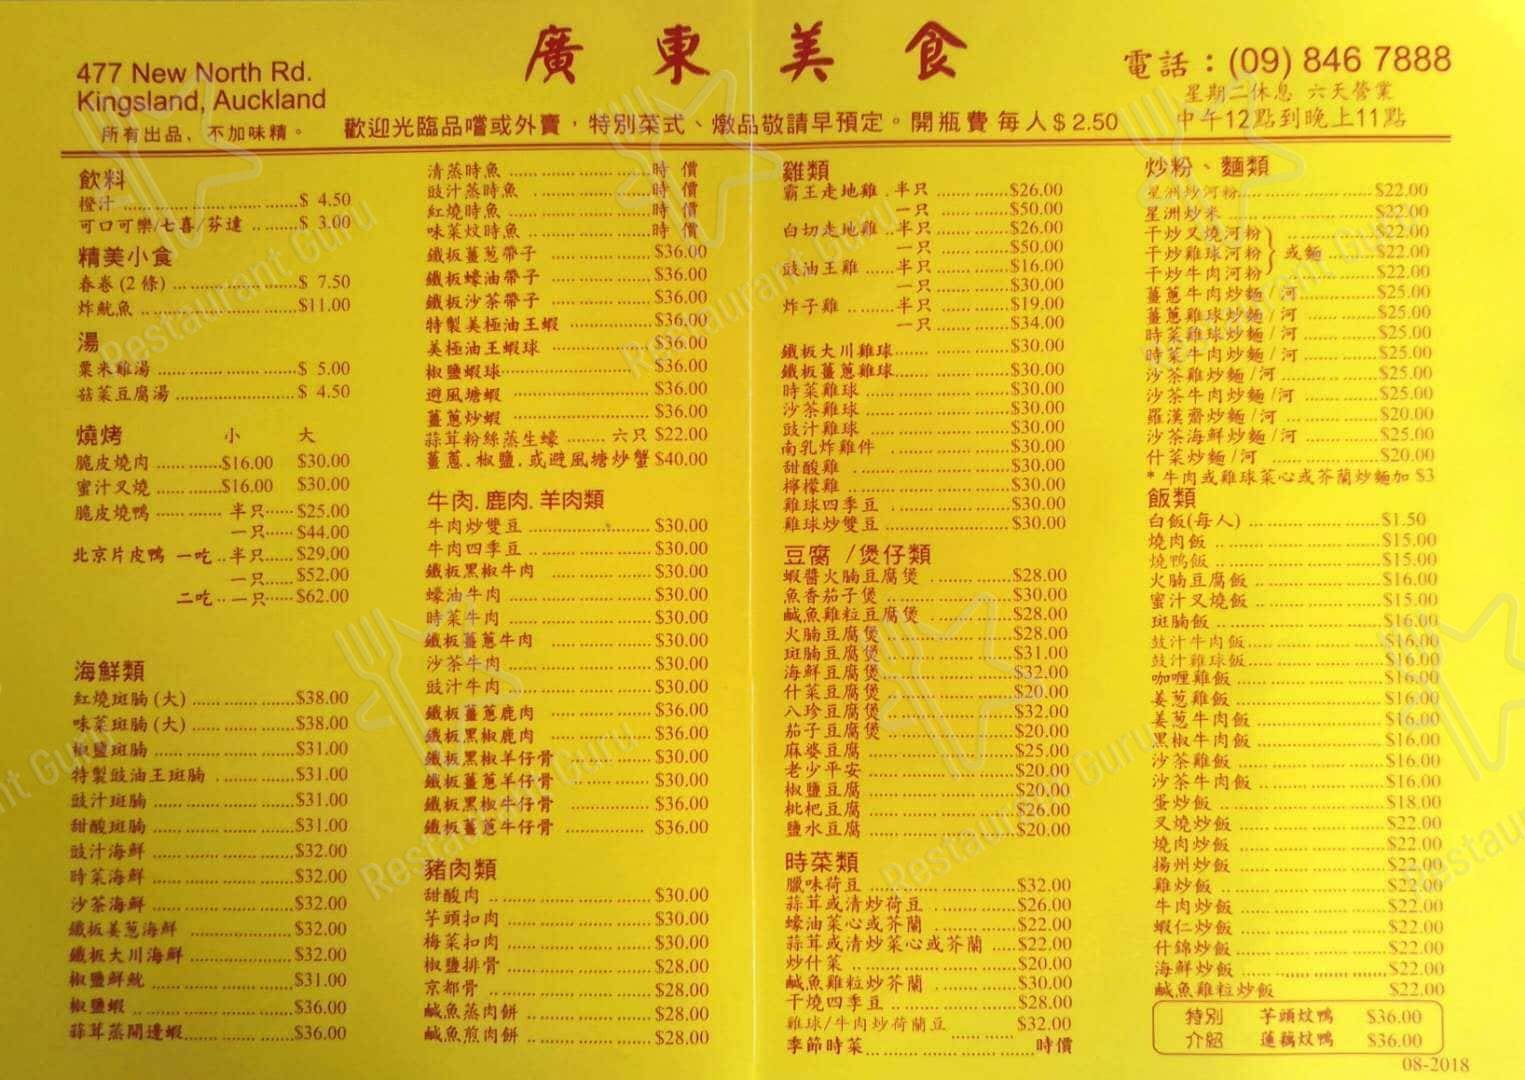 477 New North Rd.
Kingsland, Auckland
所有出品、不加味精。
廣東美食
歡迎光臨品嚐或外賣，特別菜式、燉品敬請早預定。開瓶費每人$2.50
電話：(09) 846 7888
星期二休息 六天營業
中午12點到晚上11點
飲料
橙汁 $ 4.50
可口可樂/七喜/芬達 $ 3.00
精美小食
春卷(2條) $ 7.50
炸魷魚 $11.00
湯
粟米雞湯 $ 5.00
菇菜豆腐湯 $ 4.50
燒烤 小 大
脆皮燒肉 $16.00 $30.00
蜜汁叉燒 $16.00 $30.00
脆皮燒鴨 半只 $25.00
一只 $44.00
北京片皮鴨 一吃 半只 $29.00
一只 $52.00
二吃 一只 $62.00
海鮮類
紅燒斑腩(大) $38.00
味菜斑腩(大) $38.00
椒鹽斑腩 $31.00
特製豉油王斑腩 $31.00
豉汁斑腩 $31.00
甜酸斑腩 $31.00
豉汁海鮮 $32.00
時菜海鮮 $32.00
沙茶海鮮 $32.00
鐵板姜蔥海鮮 $32.00
鐵板大川海鮮 $32.00
椒鹽鮮魷 $31.00
椒鹽蝦 $36.00
蒜茸蒸開邊蝦 $36.00
清蒸時魚 時 價
豉汁蒸時魚 時 價
紅燒時魚 時 價
味菜炆時魚 時 價
鐵板薑蔥帶子 $36.00
鐵板蠔油帶子 $36.00
鐵板沙茶帶子 $36.00
特製美極油王蝦 $36.00
美極油王蝦球 $36.00
椒鹽蝦球 $36.00
避風塘蝦 $36.00
薑蔥炒蝦 $36.00
蒜茸粉絲蒸生蠔 六只 $22.00
薑蔥.椒鹽.或避風塘炒蟹 $40.00
牛肉.鹿肉.羊肉類
牛肉炒雙豆 $30.00
牛肉四季豆 $30.00
鐵板黑椒牛肉 $30.00
蠔油牛肉 $30.00
時菜牛肉 $30.00
鐵板薑蔥牛肉 $30.00
沙茶牛肉 $30.00
豉汁牛肉 $30.00
鐵板薑蔥鹿肉 $36.00
鐵板黑椒鹿肉 $36.00
鐵板黑椒羊仔骨 $30.00
鐵板薑蔥羊仔骨 $30.00
鐵板黑椒牛仔骨 $36.00
鐵板薑蔥牛仔骨 $36.00
豬肉類
甜酸肉 $30.00
芋頭扣肉 $30.00
梅菜扣肉 $30.00
椒鹽排骨 $28.00
京都骨 $28.00
鹹魚蒸肉餅 $28.00
鹹魚煎肉餅 $28.00
雞類
霸王走地雞 半只 $26.00
一只 $50.00
白切走地雞 半只 $26.00
一只 $50.00
豉油王雞 半只 $16.00
一只 $30.00
炸子雞 半只 $19.00
一只 $34.00
鐵板大川雞球 $30.00
鐵板薑蔥雞球 $30.00
時菜雞球 $30.00
沙茶雞球 $30.00
豉汁雞球 $30.00
南乳炸雞件 $30.00
甜酸雞 $30.00
檸檬雞 $30.00
雞球四季豆 $30.00
雞球炒雙豆 $30.00
豆腐 /煲仔類
蝦醬火腩豆腐煲 $28.00
魚香茄子煲 $30.00
鹹魚雞粒豆腐煲 $28.00
火腩豆腐煲 $28.00
斑腩豆腐煲 $31.00
海鮮豆腐煲 $32.00
什菜豆腐煲 $20.00
八珍豆腐煲 $32.00
茄子豆腐煲 $20.00
麻婆豆腐 $25.00
老少平安 $20.00
椒鹽豆腐 $20.00
枇杷豆腐 $26.00
鹽水豆腐 $20.00
時菜類
臘味荷豆 $32.00
蒜茸或清炒荷豆 $26.00
蠔油菜心或芥蘭 $22.00
蒜茸或清炒菜心或芥蘭 $22.00
炒什菜 $20.00
鹹魚雞粒炒芥蘭 $30.00
干燒四季豆 $28.00
雞球/牛肉炒荷蘭豆 $32.00
季節時菜 時價
炒粉、麵類
星洲炒河粉 $22.00
星洲炒米 $22.00
干炒叉燒河粉 $22.00
干炒雞球河粉 或麵 $22.00
干炒牛肉河粉 $22.00
薑蔥牛肉炒麵/河 $25.00
薑蔥雞球炒麵/河 $25.00
時菜雞球炒麵/河 $25.00
時菜牛肉炒麵/河 $25.00
沙茶雞炒麵/河 $25.00
沙茶牛肉炒麵/河 $25.00
羅漢齋炒麵/河 $20.00
沙茶海鮮炒麵/河 $25.00
什菜炒麵/河 $20.00
* 牛肉或雞球菜心或芥蘭炒麵加 $3
飯類
白飯(每人) $1.50
燒肉飯 $15.00
燒鴨飯 $15.00
火腩豆腐飯 $16.00
蜜汁叉燒飯 $15.00
斑腩飯 $16.00
豉汁牛肉飯 $16.00
豉汁雞球飯 $16.00
咖喱雞飯 $16.00
姜葱雞飯 $16.00
姜葱牛肉飯 $16.00
黑椒牛肉飯 $16.00
沙茶雞飯 $16.00
沙茶牛肉飯 $16.00
蛋炒飯 $18.00
叉燒炒飯 $22.00
燒肉炒飯 $22.00
揚州炒飯 $22.00
雞炒飯 $22.00
牛肉炒飯 $22.00
蝦仁炒飯 $22.00
什錦炒飯 $22.00
海鮮炒飯 $22.00
鹹魚雞粒炒飯 $22.00
特別 芋頭炆鴨 $36.00
介紹 蓮藕炆鴨 $36.00
08-2018
Restaurant Guru